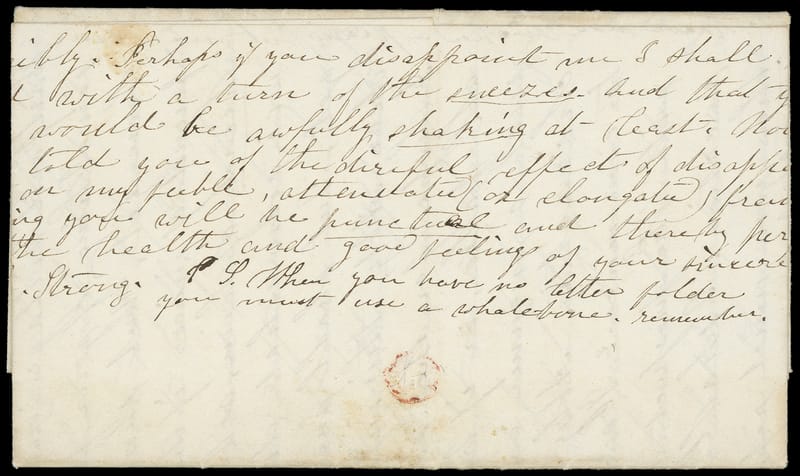 ibly. Perhaps if you disappoint me I shall
with a turn of the sneezes. and that y
would be awfully shaking at least. Now
told you of the direful effect of disappo
on my feeble, attenuated (or elongated) fram
ing you will be punctual and thereby per
the health and good feelings of your sincere
. Strong. P S. When you have no letter folder
you must use a whalebone. remember.